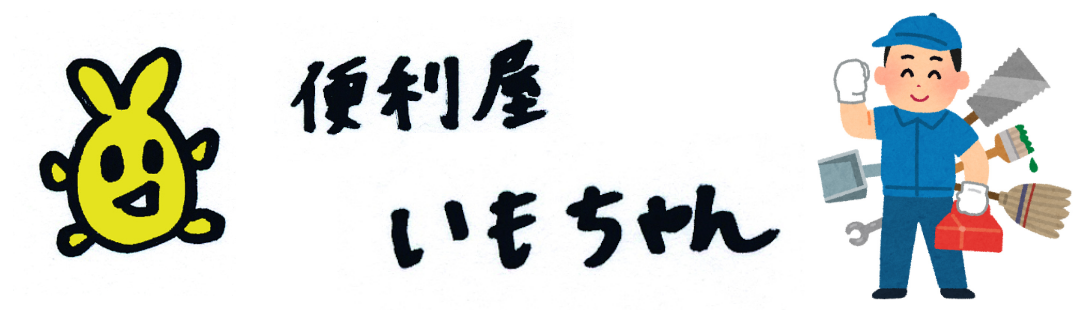 便利屋
いもちゃん